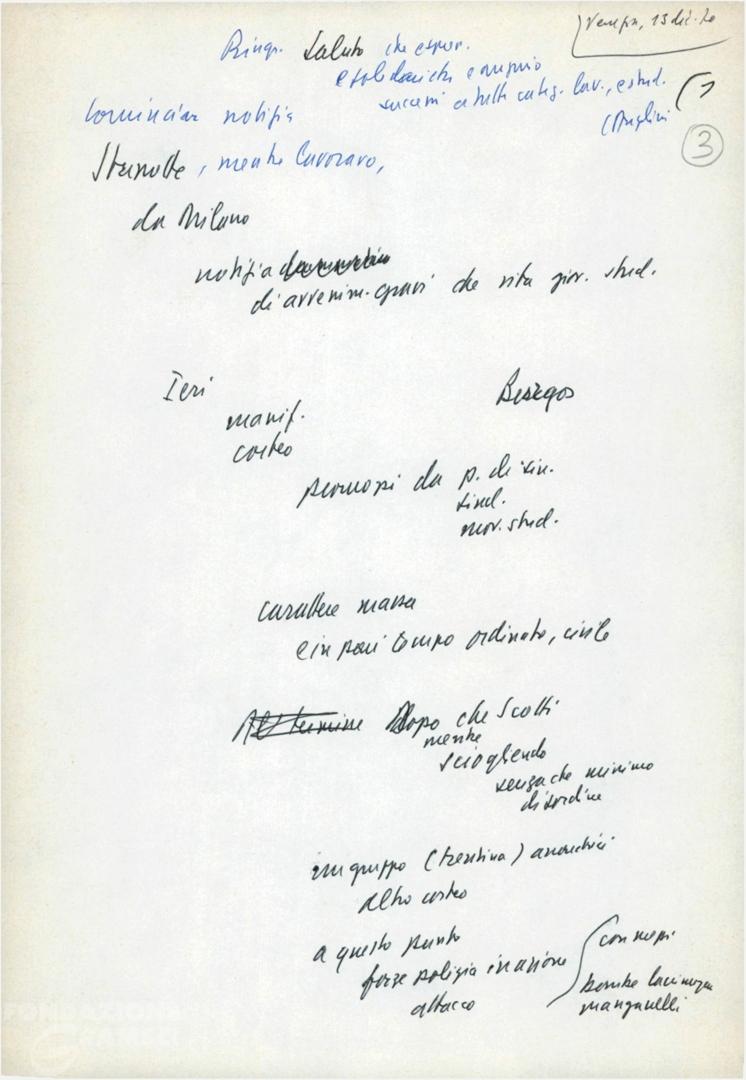 Venezia, 13 dic. 70
Ringr. Saluto che espon.
e solidarietà e augurio
successi a tutte categ. lav., e stud.
(Puglini
1
3
Cominciare notizia
Stanotte, mentre lavoravo,
da Milano
notizia
di avvenim. gravi che vita giov. stud.
Ieri
Burgos
manif.
corteo
promossi da p. di sin.
sind.
mov. stud.
carattere massa
e in pari tempo ordinato, civile
Al termine Dopo che Scotti
mentre
sciogliendo
senza che minimo
disordine
un gruppo (trentina) anarchici
altro corteo
a questo punto
forze polizia in azione
attacco
con mezzi
bombe lacrimogene
manganelli
FONDAZIONE
GRAMSCI